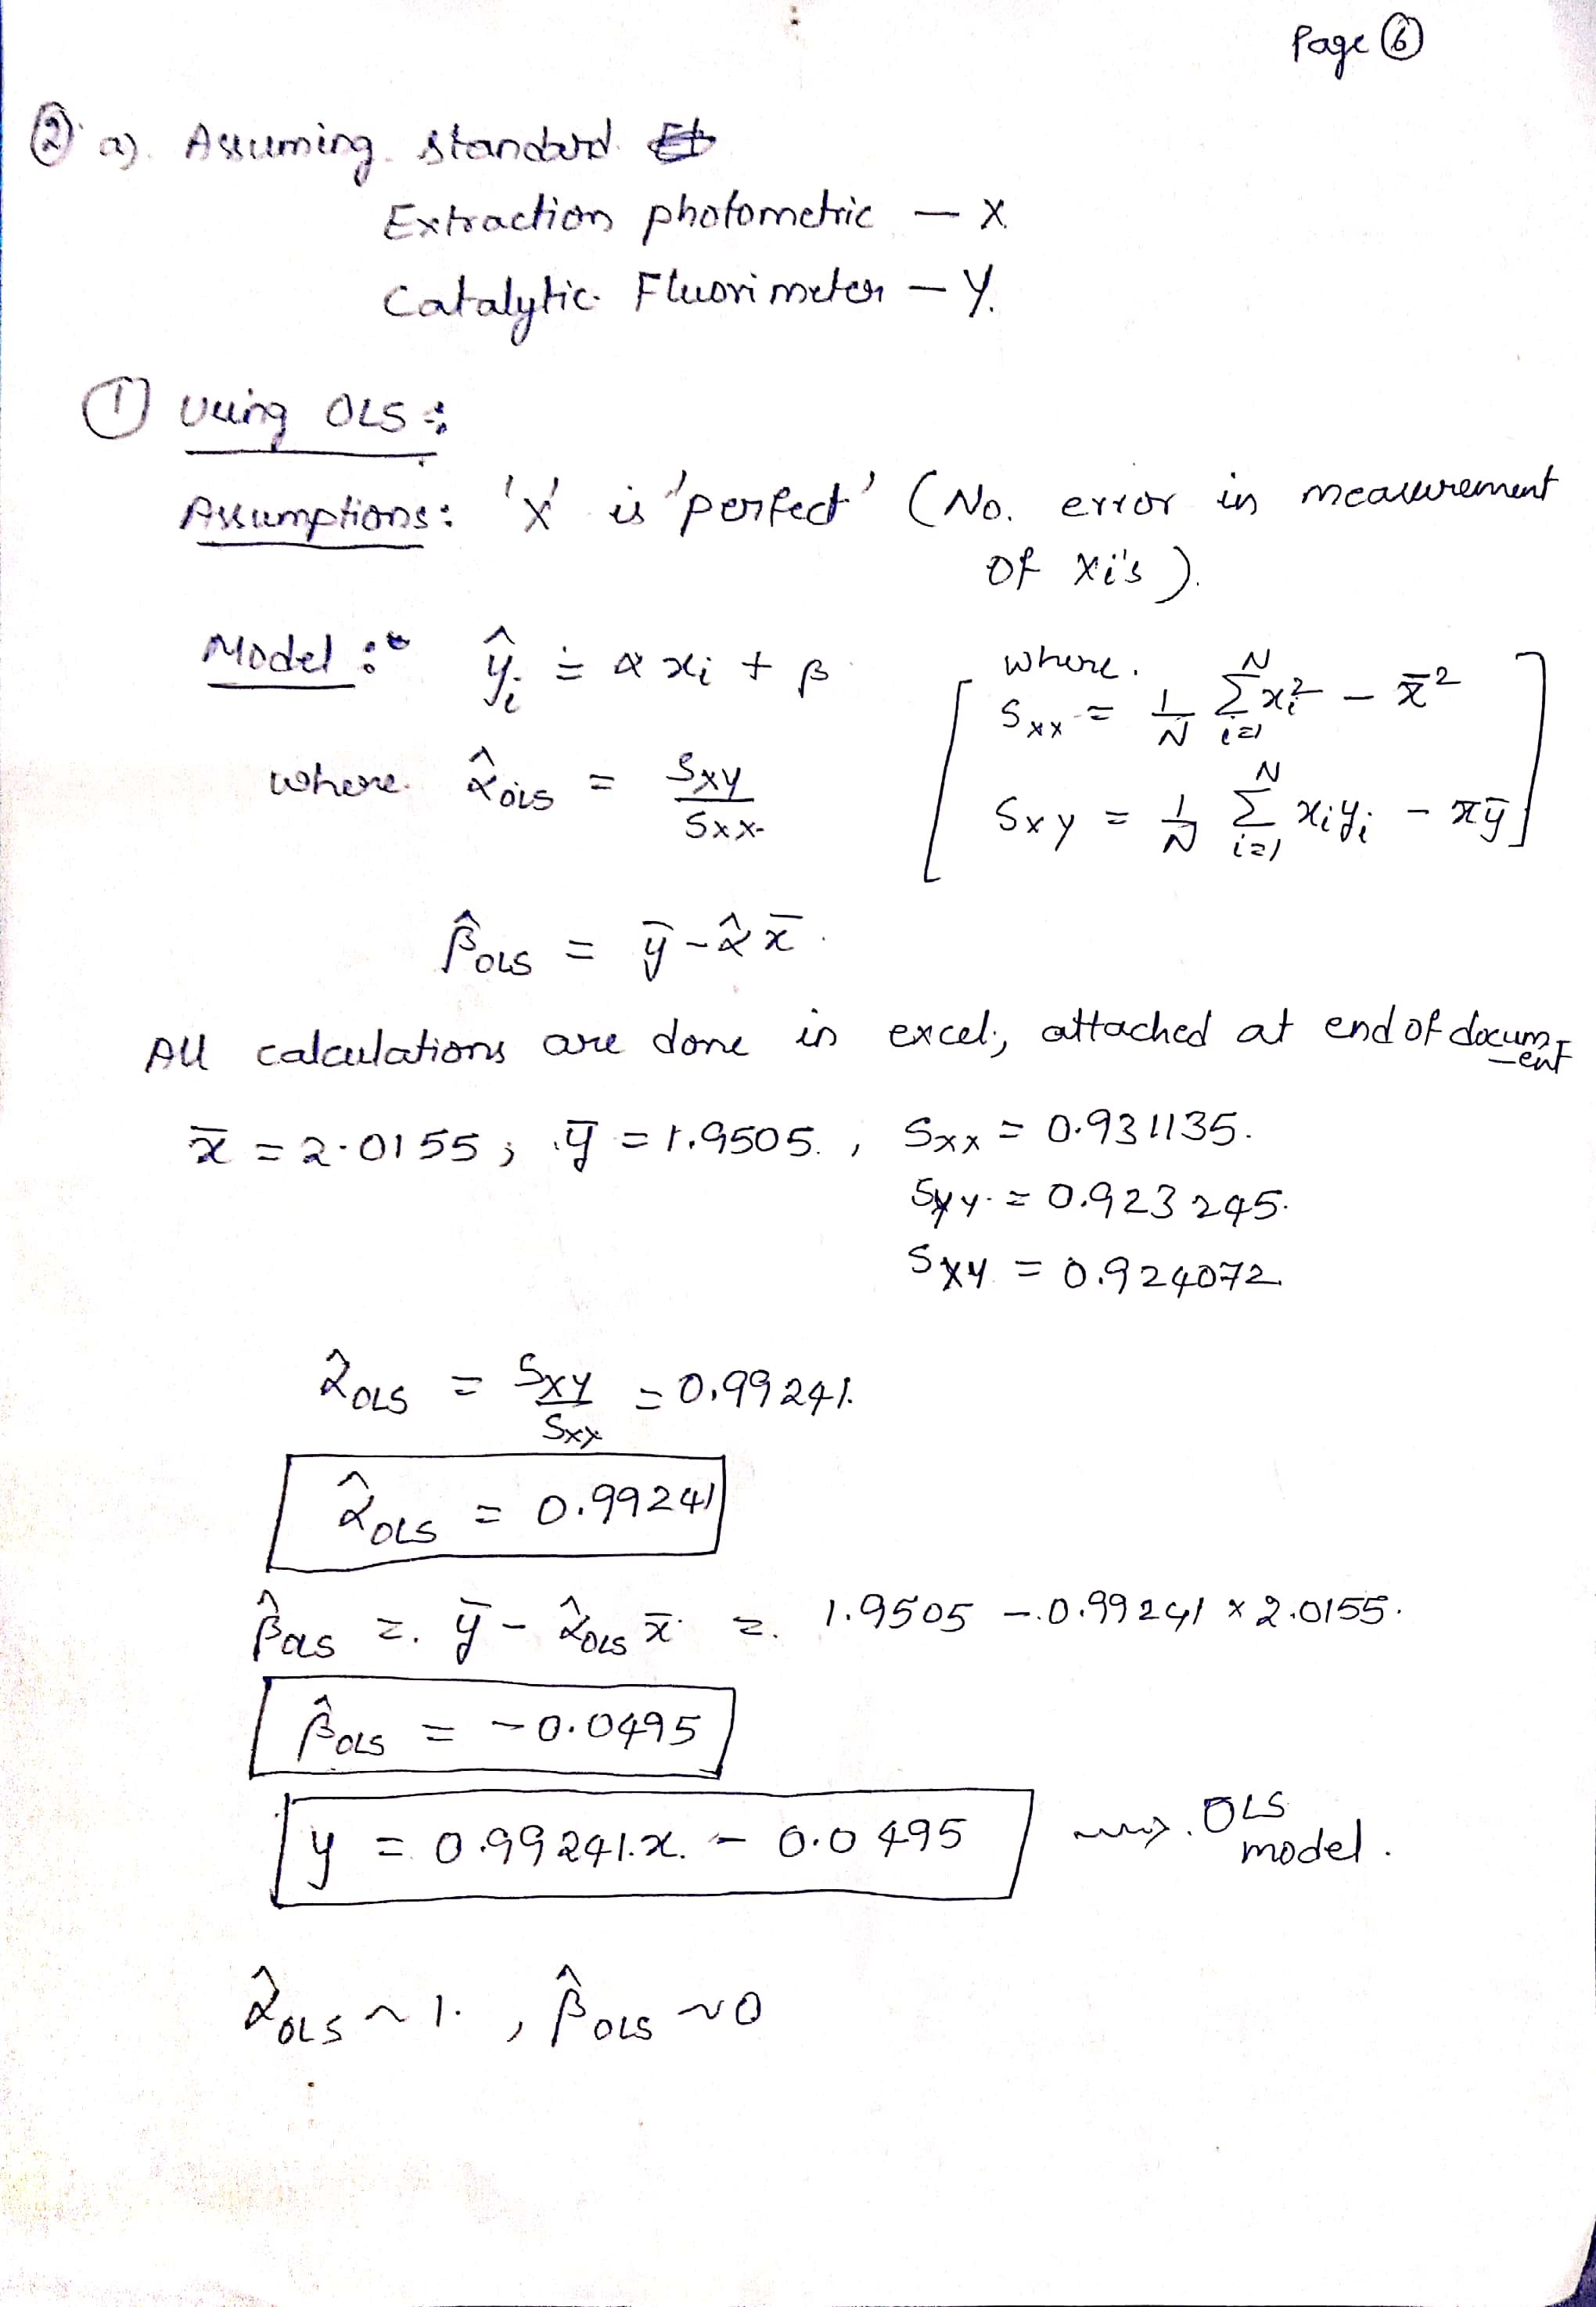 Page ⑥
② a). Assuming standard
Extraction photometric — X
Catalytic Fluorimeter — Y.
① Using OLS :
Assumptions: 'X' is 'perfect' (No. error in measurement
of xi's ).
Model : ŷᵢ = α xᵢ + β
where α̂_OLS = Sxy / Sxx
[ where. Sxx = 1/N Σ_{i=1}^{N} xᵢ² − x̄²
Sxy = 1/N Σ_{i=1}^{N} xᵢyᵢ − x̄ȳ ]
β̂_OLS = ȳ − α̂ x̄.
All calculations are done in excel; attached at end of docum-
-ent
x̄ = 2.0155 ; ȳ = 1.9505. , Sxx = 0.931135.
Syy = 0.923245.
Sxy = 0.924072.
α̂_OLS = Sxy / Sxx = 0.99241.
α̂_OLS = 0.99241
β̂_OLS = ȳ − α̂_OLS x̄ = 1.9505 − 0.99241 × 2.0155.
β̂_OLS = −0.0495
y = 0.99241.x. − 0.0495 ⇝ OLS
model.
α̂_OLS ~ 1. , β̂_OLS ~ 0